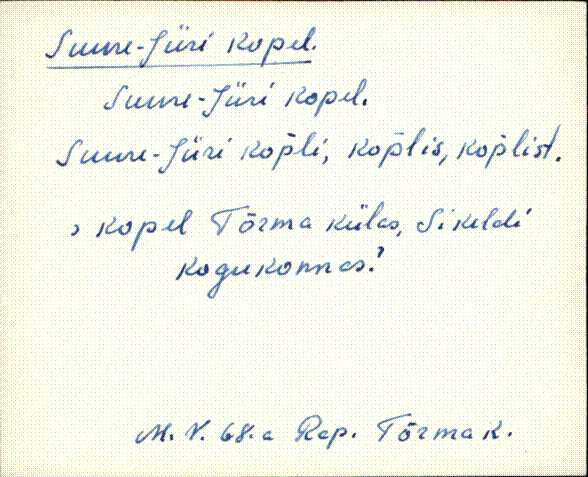 Suure-Jüri kopel.
Suure-Jüri kopel.
Suure-Jüri kop̄li, kop̄lis, kop̄list.
› kopel Tõrma külas, Sikeldi
kogukonnas.?
M. V. 68.a Rap. Tõrma k.